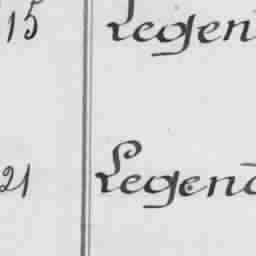 15 Legen
21 Legend